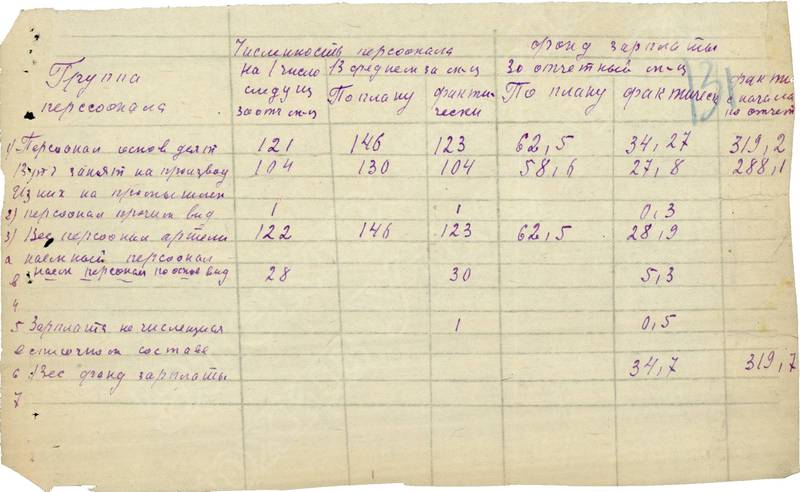 Численность персонала фонд зарплаты
Группа персоонала
на 1 число следующ за отч м-ц
В среднем за м-ц
За отчетный м-ц
По плану фактически По плану фактическ
факти с начала по отчет
131
1) Персоонал основ деят 121 146 123 62,5 34,27 319,2
В т ч занят на производ 104 130 104 58,6 27,8 288,1
Из них на промышлен
2) персоонал прочих вид 1 1 0,3
3) Вес персоонал артели 122 146 123 62,5 28,9
а наемный персоонал
в наем персонал по основ вид 28 30 5,3
4
5 Зарплата не числящихся 1 0,5
в списочном составе
6 Вес фонд зарплаты 34,7 319,7
7